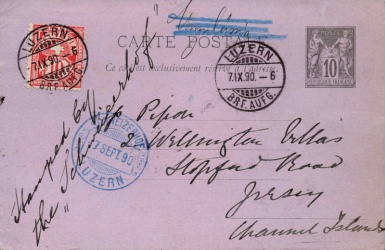 CARTE POSTALE
Ce côté est exclusivement réservé à l'adresse.
LUZERN
7.IX.90.-6
BRF.AUFG.
LUZERN
7.IX.90.-6
BRF.AUFG.
10
Miss Pipon
2 Wellington Villas
Stopford Road
Jersey
Channel Islands
7 SEPT. 90
LUZERN
Stamped by
the "Schweizerhof"